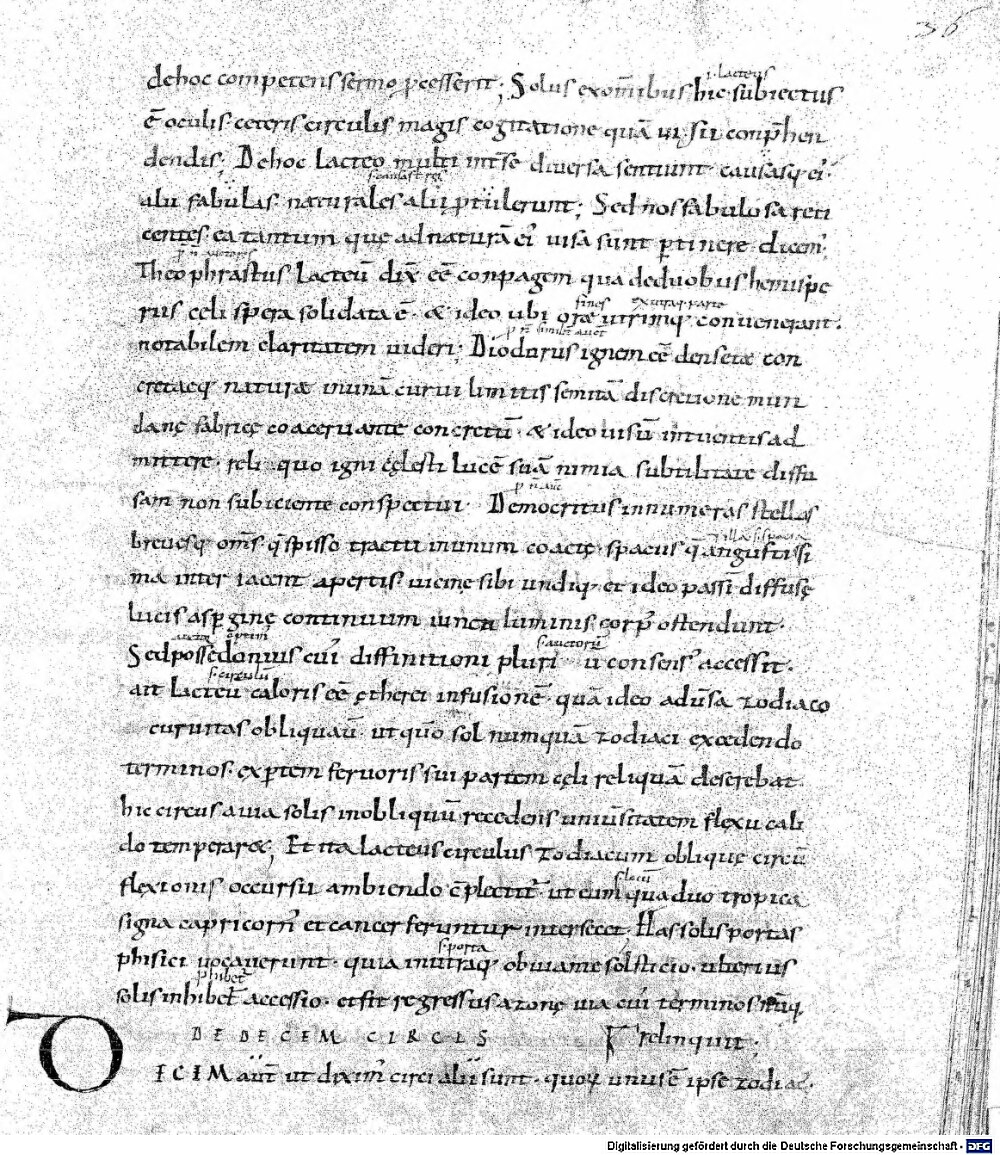 36
dehoc competens sermo ꝓcesserit; Solus exom̄ibus hic subiectus
i. lacteus
ē oculis ceteris circulis magis cogitatione quā ui sui conp̄hen
dendis; Dehoc lacteo multi int̄se diuersa sentiunt causasq; ei'
alii fabulas naturales alii ꝓtulerunt; Sed nos fabulosa reti
centes ea tantum que ad naturā ei' uisa sunt ꝑtinere dicem'
Theophrastus lacteū dix̄ eē conpagem qua deduobus hemispe
riis celi spera solidata ē· & ideo ubi orae utrimq; conuenerant·
fines ex utraq; parte
notabilem claritatem uideri; Diodorus ignem eē densetae con
cretaeq; naturae inunā curui limitis semitā discretione mun
danę fabricę coaceruante concretū· & ideo uisū intuentis ad
mittere· reliquo igni cęlesti lucē suā nimia subtilitate diffu
sam non subiciente conspectui· Democritus innumeras stellas
breuesq; om̄s q̄ spisso tractu inunum coactę· spaciis q̄ angustissi
ma inter iacent apertis uicinę sibi undiq; et ideo passī diffusę
lucis aspginę continuum iuncti luminis corp' ostendunt·
Sed possedonius cui' diffinitioni plurium consens' accessit·
s. auctorū
ait lacteū caloris eē ętherei infusionē· quā ideo aduersa zodiaco
s. circulū
curuitas obliquau̅· ut quō sol numquā zodiaci excedendo
terminos· expertem feruoris sui partem cęli reliquā deserebat·
hic circus a uia solis inobliquū recedens uniūsitatem flexu cali
do temperar&; Et ita lacteus circulus zodiacum oblique circū
flexionis occursu ambiendo cōplectit̄· ut eum qua duo tropica
signa capricorn' et cancer feruntur intersecet· Has solis portas
phisici uocauerunt· quia inutraq; obuiante solsticio· ulterius
s. porta
solis inhibet̄ accessio· et fit regressus azonę uia cui' terminos nūq;
ꝓhibet̄
relinquit;
DEDECEM CIRCLIS
DICIM aūt ut dixim' circi alii sunt· quoꝝ unus ē ipse zodiac'·
Digitalisierung gefördert durch die Deutsche Forschungsgemeinschaft - DFG